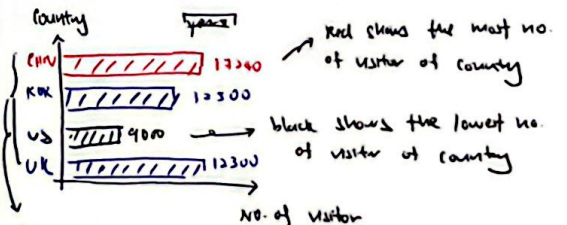 Country
years
CHN 17240
KOR 12300
US 9000
UK 12300
No. of visitor
red shows the most no.
of visitor of country
black shows the lowest no.
of visitor of country